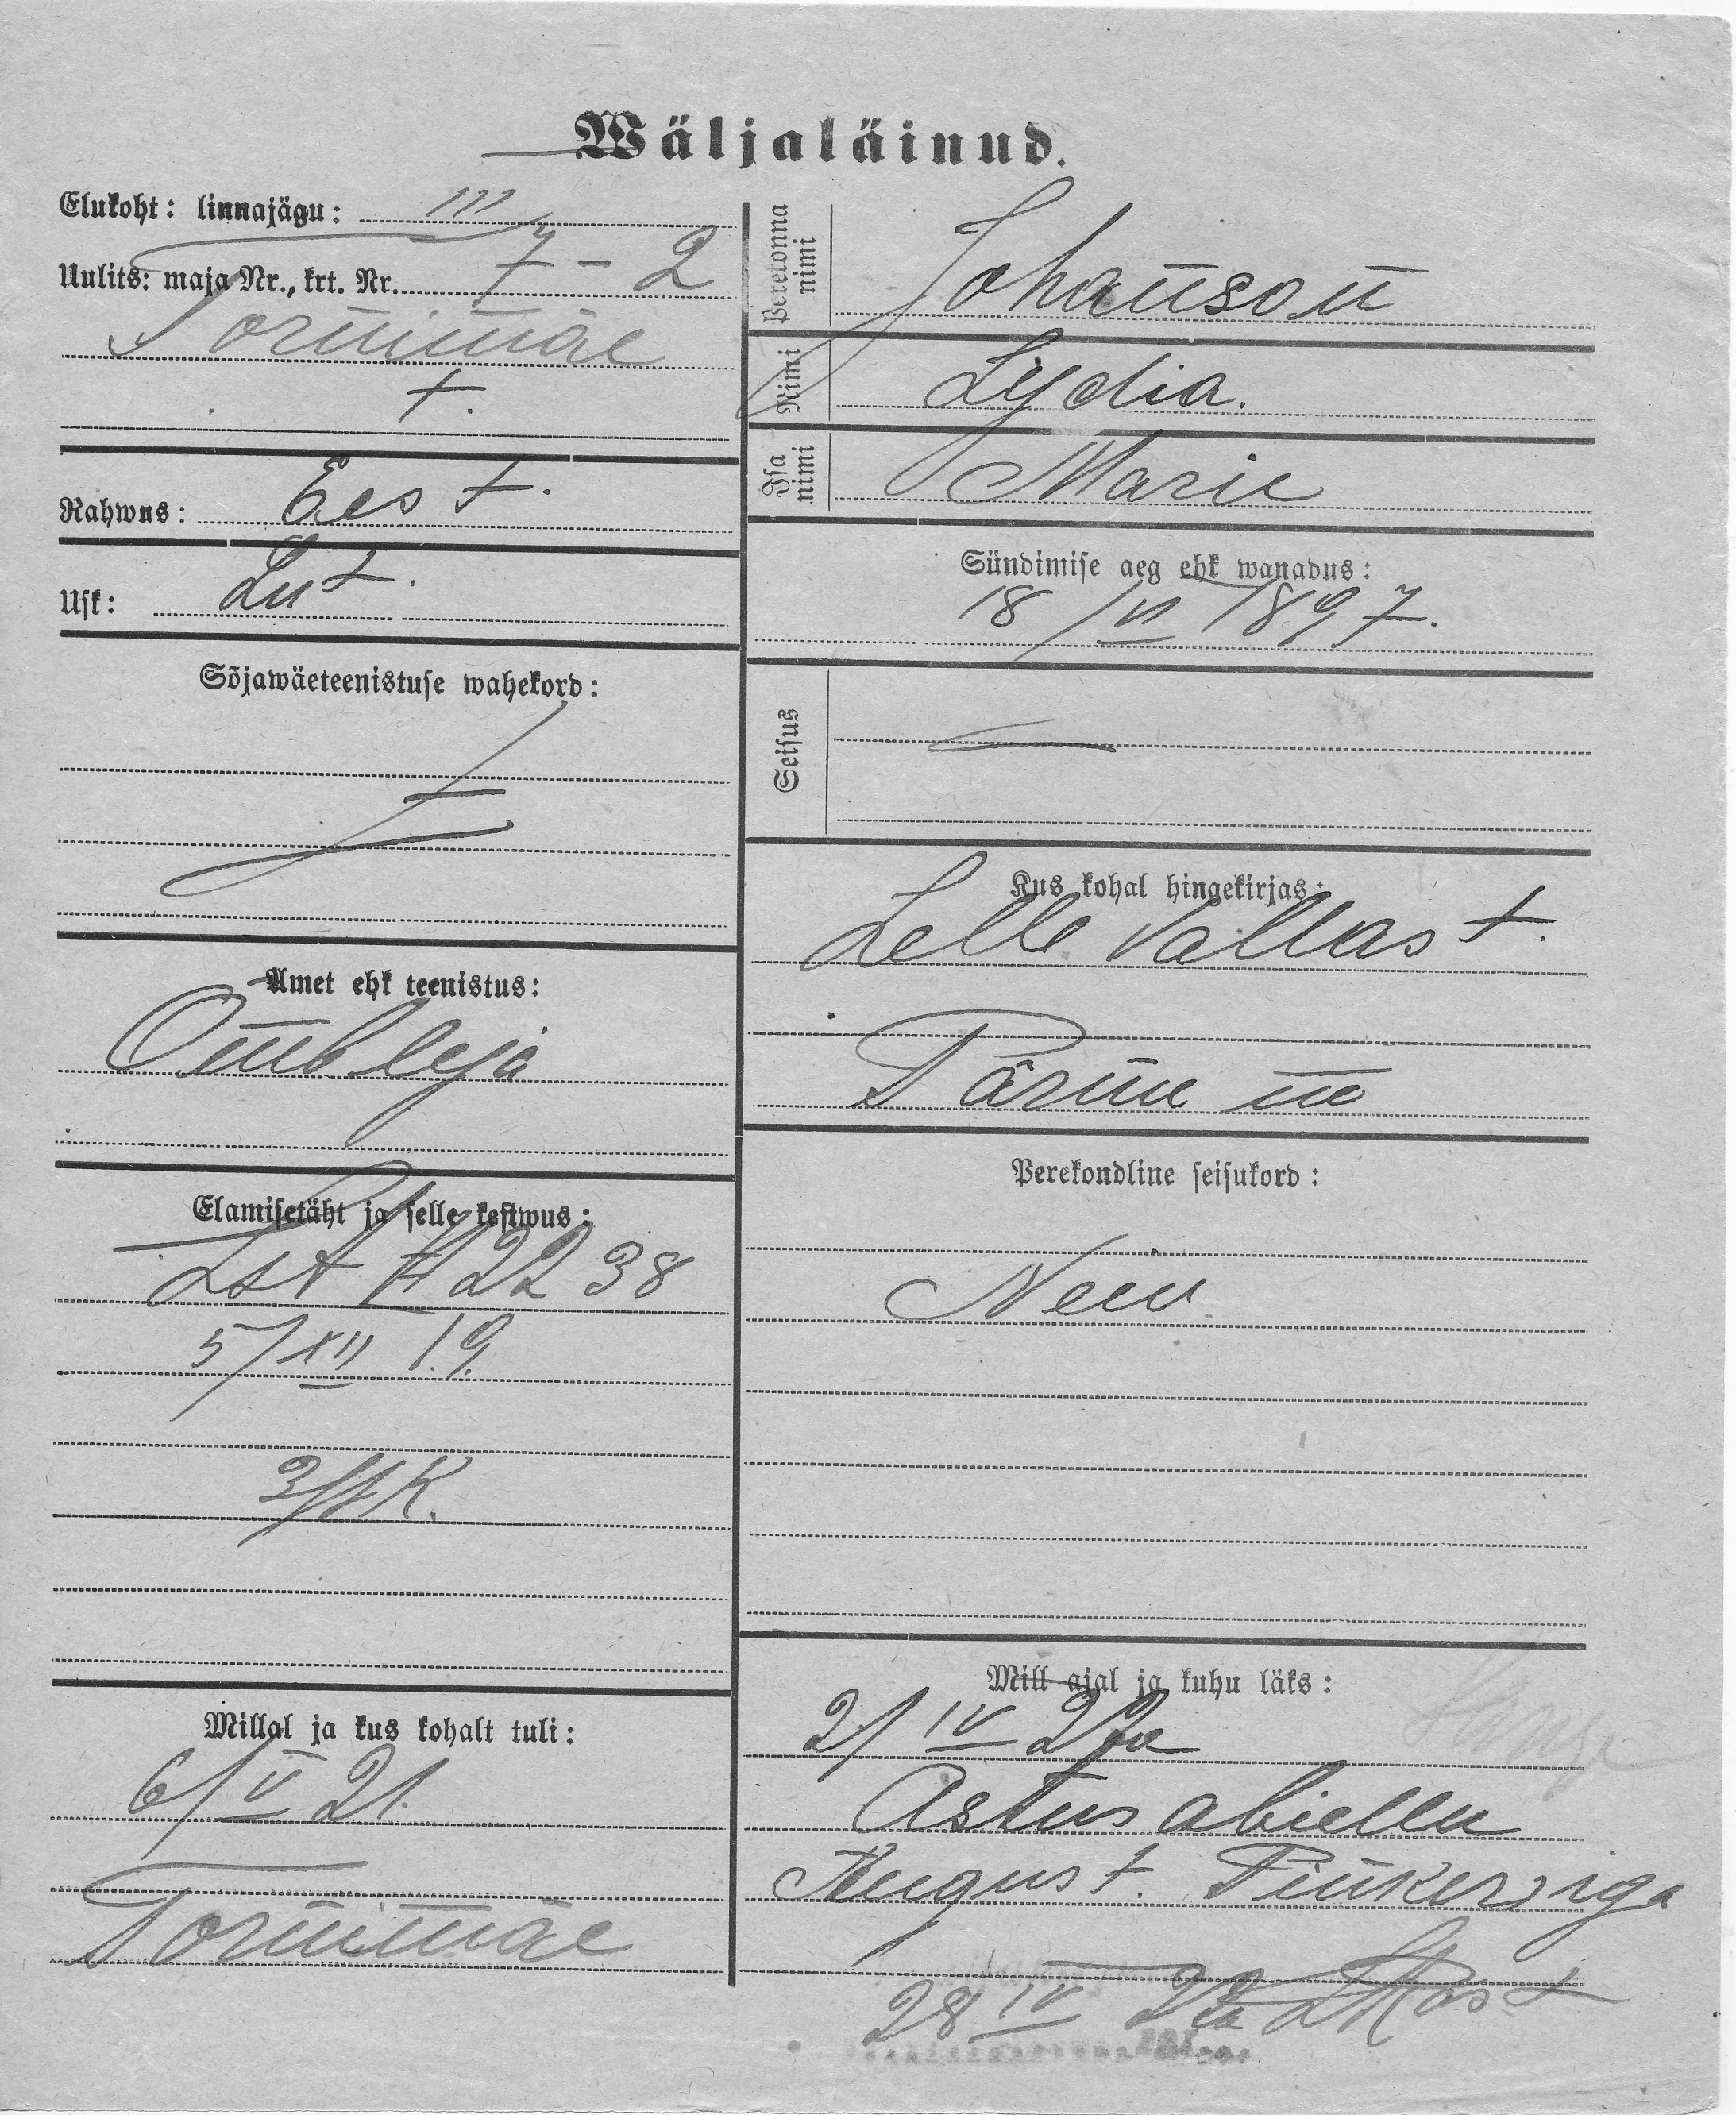 Wäljaläinud.
Elukoht: linnajägu: III
Uulits: maja Nr., krt. Nr. 7 - 2
Tornimäe
t.
Rahwus: Eest.
Usk: Lut.
Sõjawäeteenistuse wahekord:
Amet ehk teenistus:
Õmbleja
Elamisetäht ja selle kestwus:
5/XII 19.
Millal ja kus kohalt tuli:
6/V 21.
Tornimäe
Perekonna nimi Johanson
Nimi Lydia.
Isa nimi Marie
Sündimise aeg ehk wanadus:
18/VI 1897.
Seisus
Kus kohal hingekirjas:
Lelle Vallast.
Pärnu m
Perekondline seisukord:
Neiu
Mill ajal ja kuhu läks:
21 IV 22a
Astus abiellu
August
28 IV 22a